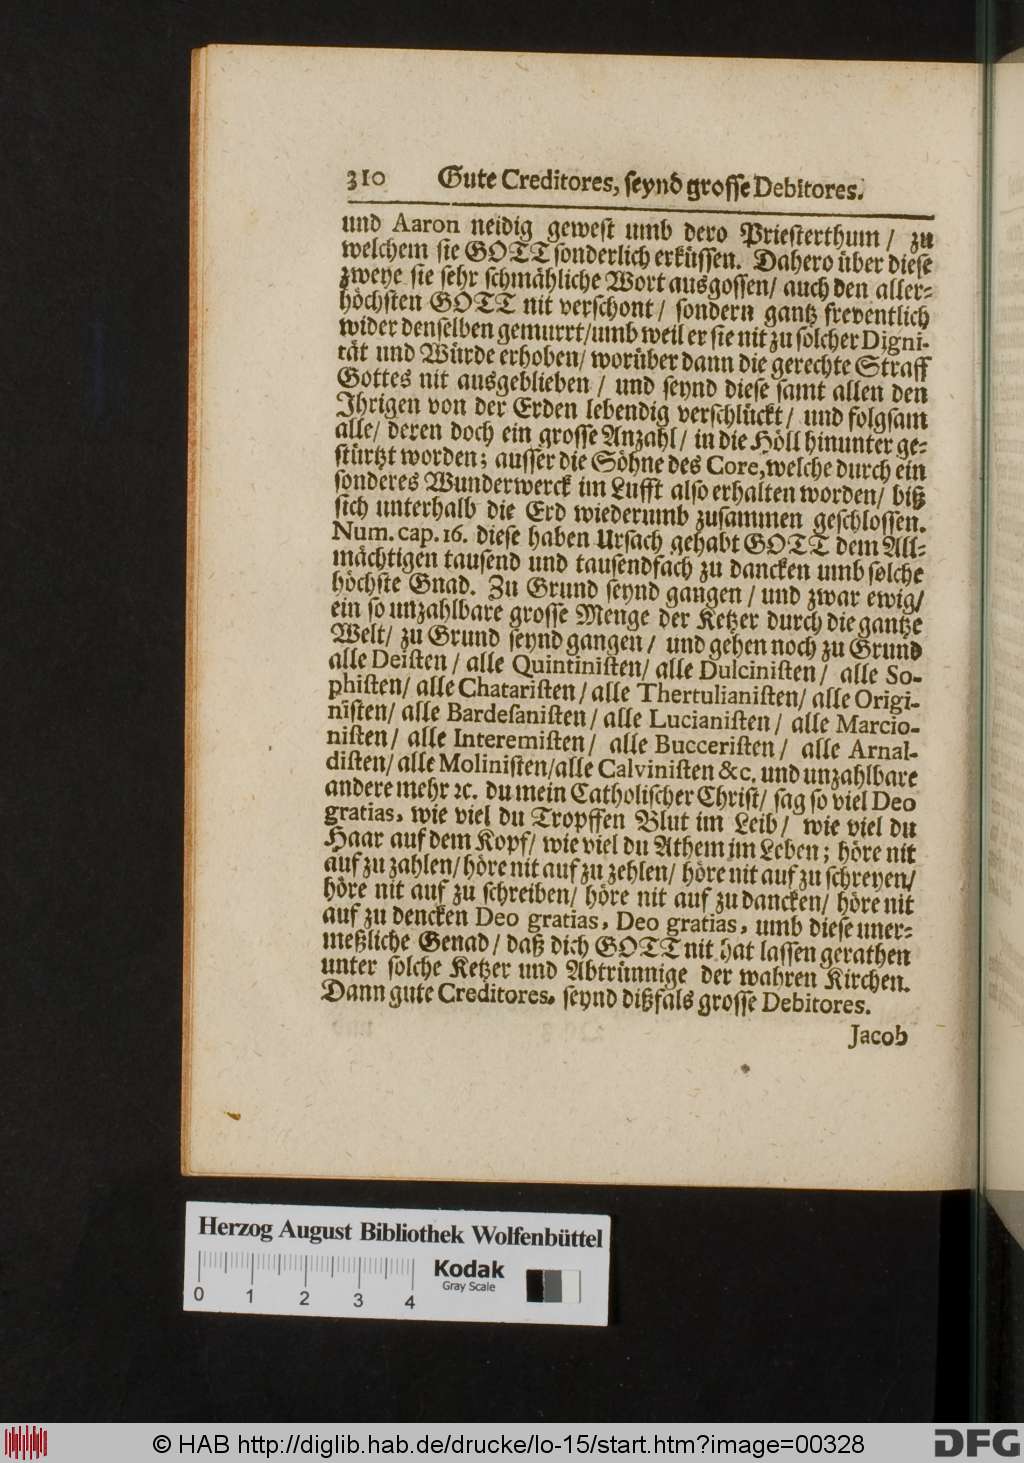 310 Gute Creditores, seynd grosse Debitores.
und Aaron neidig gewest umb dero Priesterthum / zu
welchem sie GOTT sonderlich erküssen. Dahero über diese
zweye sie sehr schmähliche Wort ausgossen/ auch den aller-
höchsten GOTT nit verschont / sondern gantz freventlich
wider denselben gemurrt/umb weil er sie nit zu solcher Digni-
tät und Würde erhoben/ worüber dann die gerechte Straff
Gottes nit ausgeblieben / und seynd diese samt allen den
Ihrigen von der Erden lebendig verschlückt/ und folgsam
alle/ deren doch ein grosse Anzahl/ in die Höll hinunter ge-
stürtzt worden; ausser die Söhne des Core,welche durch ein
sonderes Wunderwerck im Lufft also erhalten worden/ biß
sich unterhalb die Erd wiederumb zusammen geschlossen.
Num. cap. 16. diese haben Ursach gehabt GOTT dem All-
mächtigen tausend und tausendfach zu dancken umb solche
höchste Gnad. Zu Grund seynd gangen / und zwar ewig/
ein so unzahlbare grosse Menge der Ketzer durch die gantze
Welt/ zu Grund seynd gangen / und gehen noch zu Grund
alle Deisten / alle Quintinisten/ alle Dulcinisten / alle So-
phisten/ alle Chataristen / alle Thertulianisten/ alle Origi-
nisten/ alle Bardesanisten / alle Lucianisten / alle Marcio-
nisten/ alle Interemisten / alle Bucceristen / alle Arnal-
disten/ alle Molinisten/alle Calvinisten &c. und unzahlbare
andere mehr ꝛc. du mein Catholischer Christ/ sag so viel Deo
gratias, wie viel du Tropffen Blut im Leib / wie viel du
Haar auf dem Kopf/ wie viel du Athem im Leben; höre nit
auf zu zahlen/ höre nit auf zu zehlen/ höre nit auf zu schreyen/
höre nit auf zu schreiben/ höre nit auf zu dancken/ höre nit
auf zu dencken Deo gratias, Deo gratias, umb diese uner-
meßliche Genad / daß dich GOTT nit hat lassen gerathen
unter solche Ketzer und Abtrünnige der wahren Kirchen.
Dann gute Creditores, seynd dißfals grosse Debitores.
Jacob
Herzog August Bibliothek Wolfenbüttel
Kodak
Gray Scale
0 1 2 3 4
© HAB http://diglib.hab.de/drucke/lo-15/start.htm?image=00328
DFG